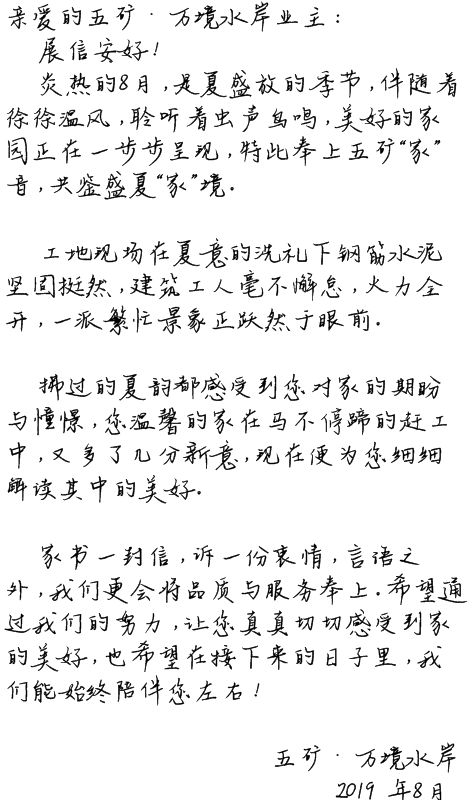 亲爱的五矿·万境水岸业主：
展信安好！
炎热的8月，是夏盛放的季节，伴随着
徐徐温风，聆听着虫声鸟鸣，美好的家
园正在一步步呈现，特此奉上五矿“家”
音，共鉴盛夏“家”境.
工地现场在夏意的洗礼下钢筋水泥
坚固挺然，建筑工人毫不懈怠，火力全
开，一派繁忙景象正跃然于眼前.
拂过的夏韵都感受到您对家的期盼
与憧憬，您温馨的家在马不停蹄的赶工
中，又多了几分新意，现在便为您细细
解读其中的美好.
家书一封信，诉一份衷情，言语之
外，我们更会将品质与服务奉上.希望通
过我们的努力，让您真真切切感受到家
的美好，也希望在接下来的日子里，我
们能始终陪伴您左右！
五矿·万境水岸
2019年8月